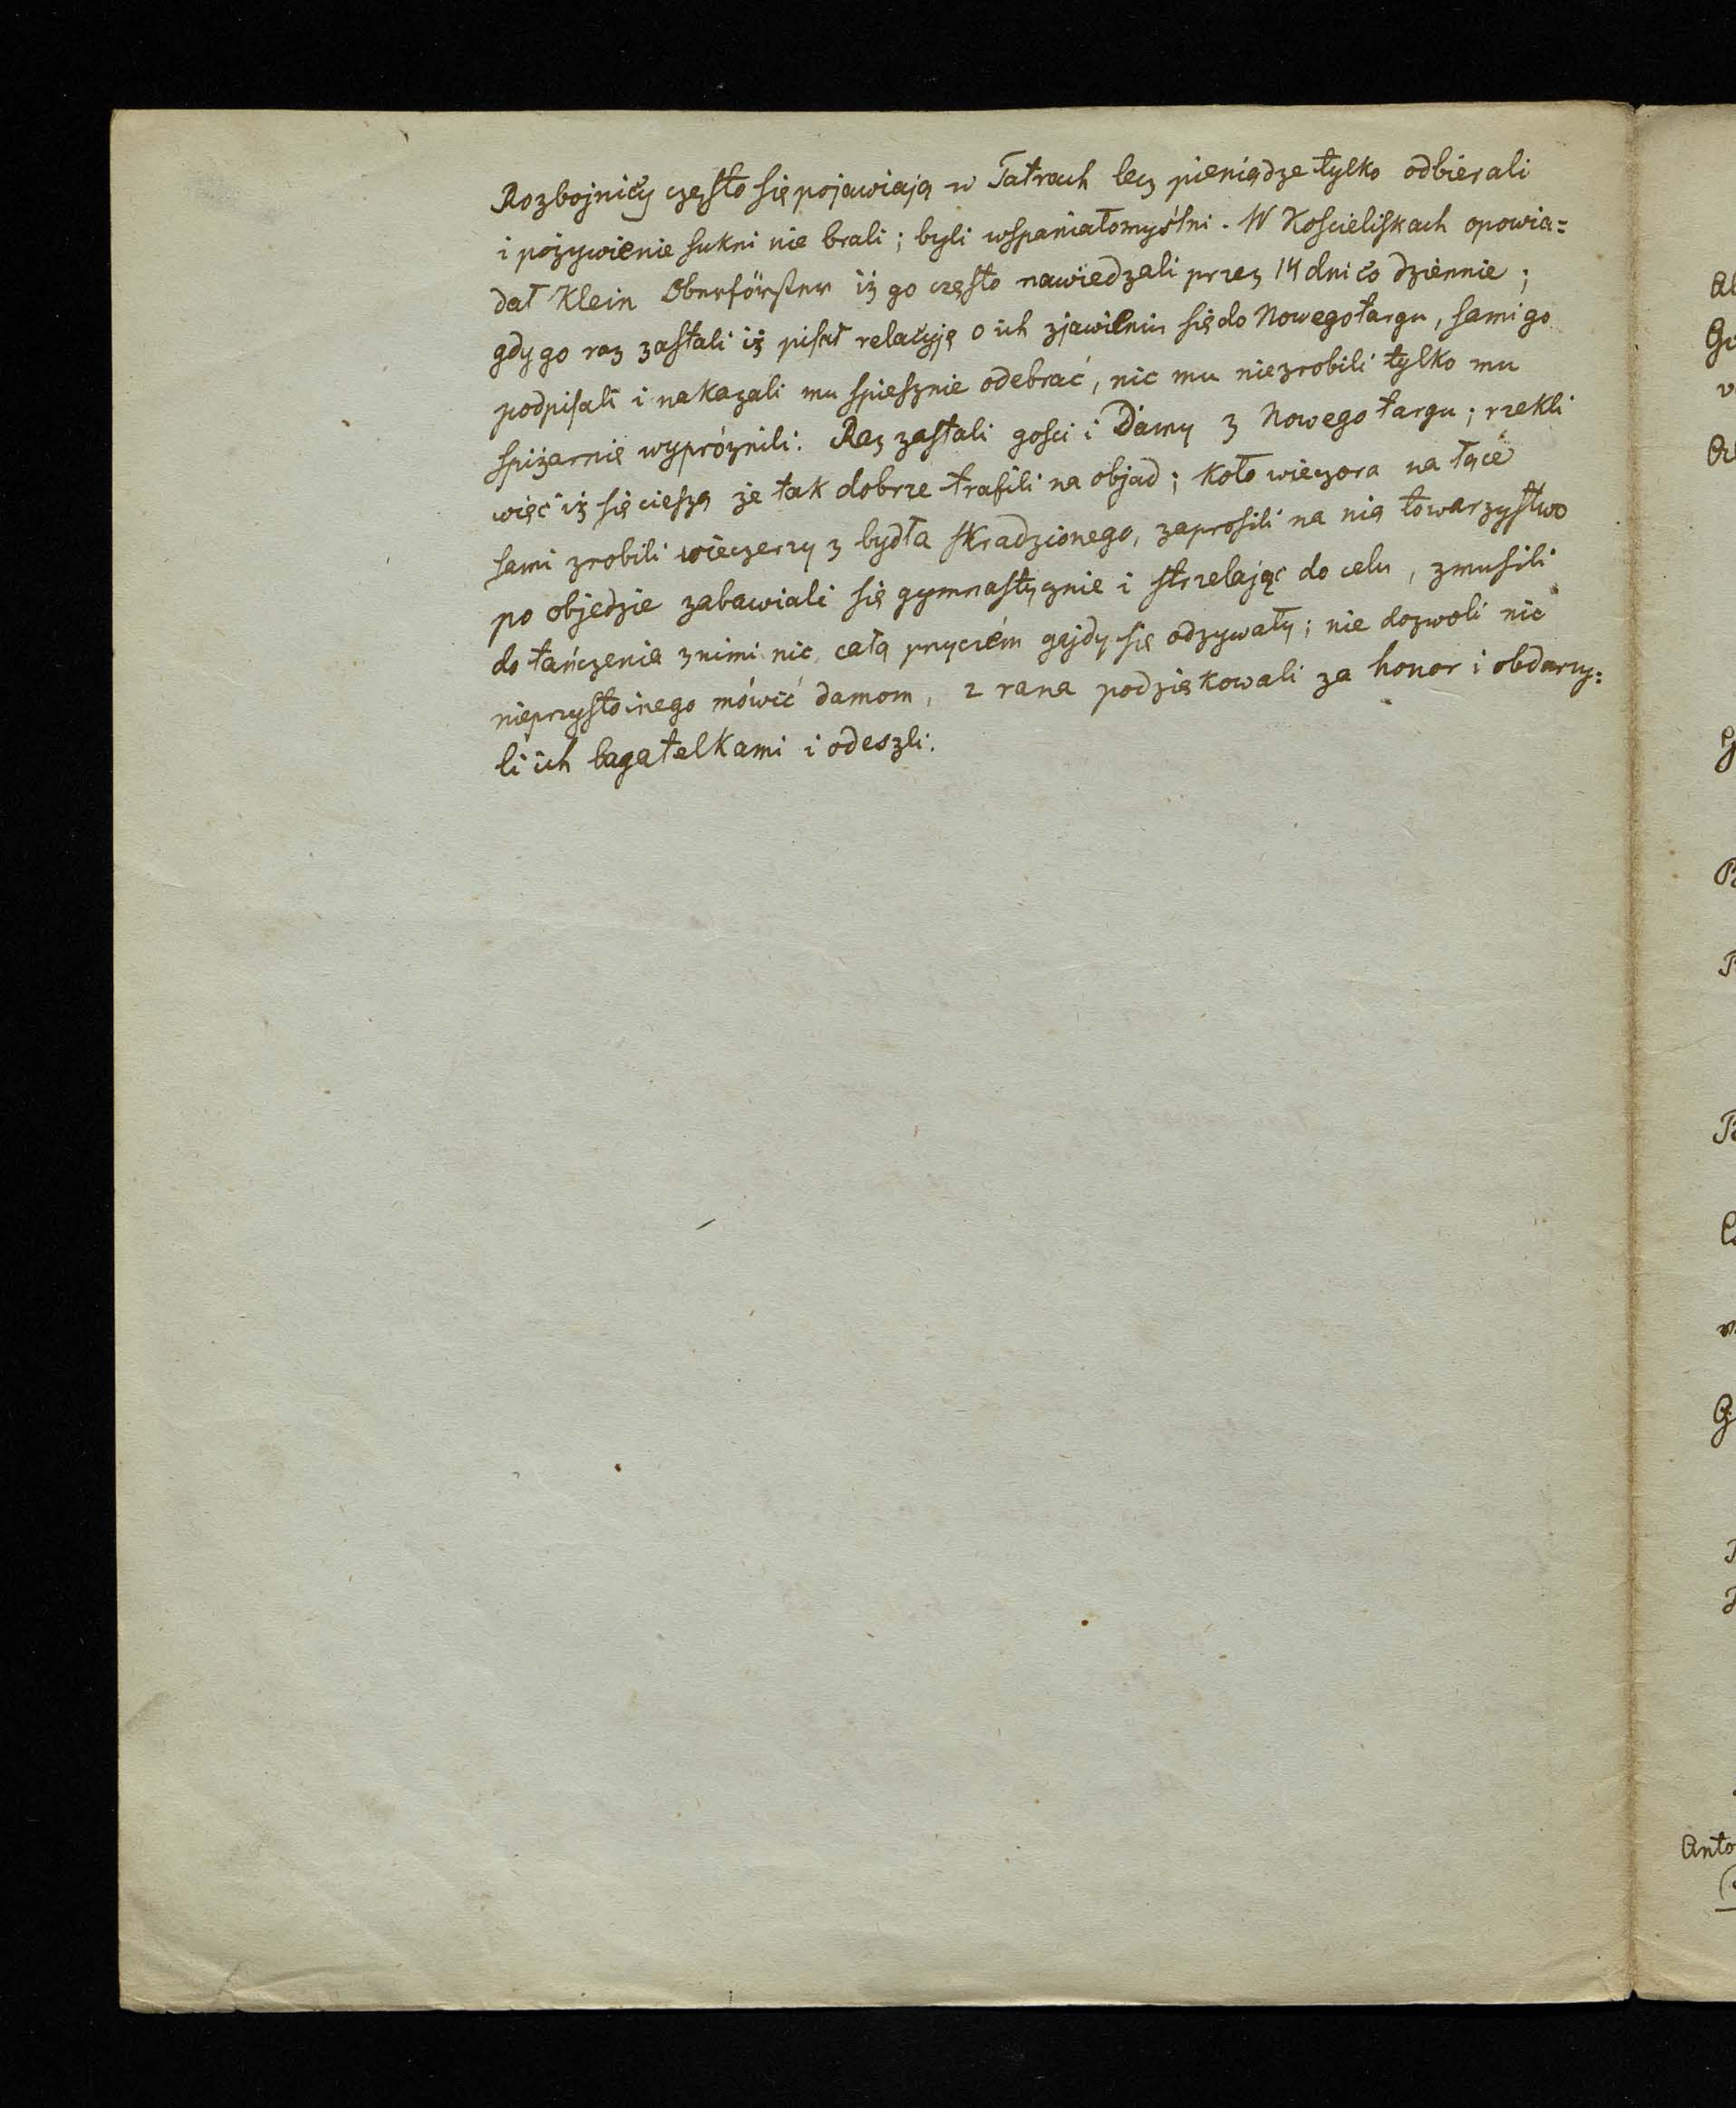 Rozbojnicy często się pojawiają w Tatrach lecz pieniądze tylko odbierali
i pożywienie sukni nie brali; byli wspaniałomyślni. W Kościeliskach opowia=
dał Klein Oberförster iż go często nawiedzali przez 14 dni co dziennie;
gdy go raz zastali iż pisał relacyję o ich zjawieniu się do Nowegotargu, sami go
podpisali i nakazali mu spiesznie odebrać, nic mu niezrobili tylko mu
spiżarnię wypróżnili. Raz zastali gości i Damy z Nowego targu; rzekli
więc iż się cieszą że tak dobrze trafili na objad; koło wieczora na łące
sami zrobili wieczerzy z bydła skradzionego, zaprosili na nią towarzystwo
po objedzie zabawiali się gymnastycznie i strzelając do celu, zmusili
do tańczenia znimi nic całą przyczém gajdy się odzywały; nie dozwoli nic
nieprzystoinego mówić damom, z rana podziękowali za honor i obdarzy=
li ich bagatelkami i odeszli.
Anto